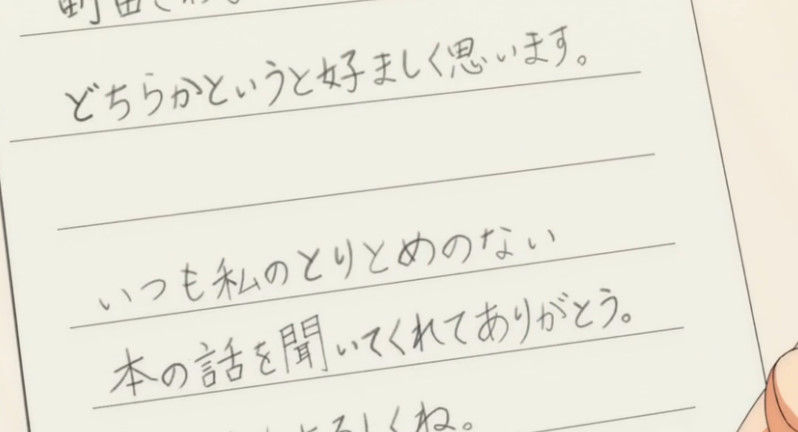 どちらかというと好ましく思います。
いつも私のとりとめのない
本の話を聞いてくれてありがとう。
よろしくね。